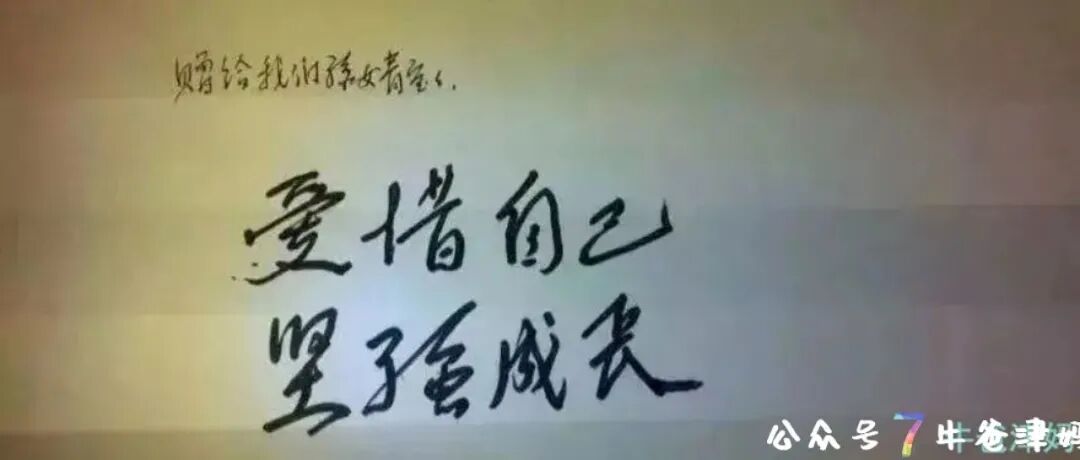 赠给我们孙女青宝、
爱惜自己
坚强成长
公众号 7 牛爸津妈
牛爸津妈